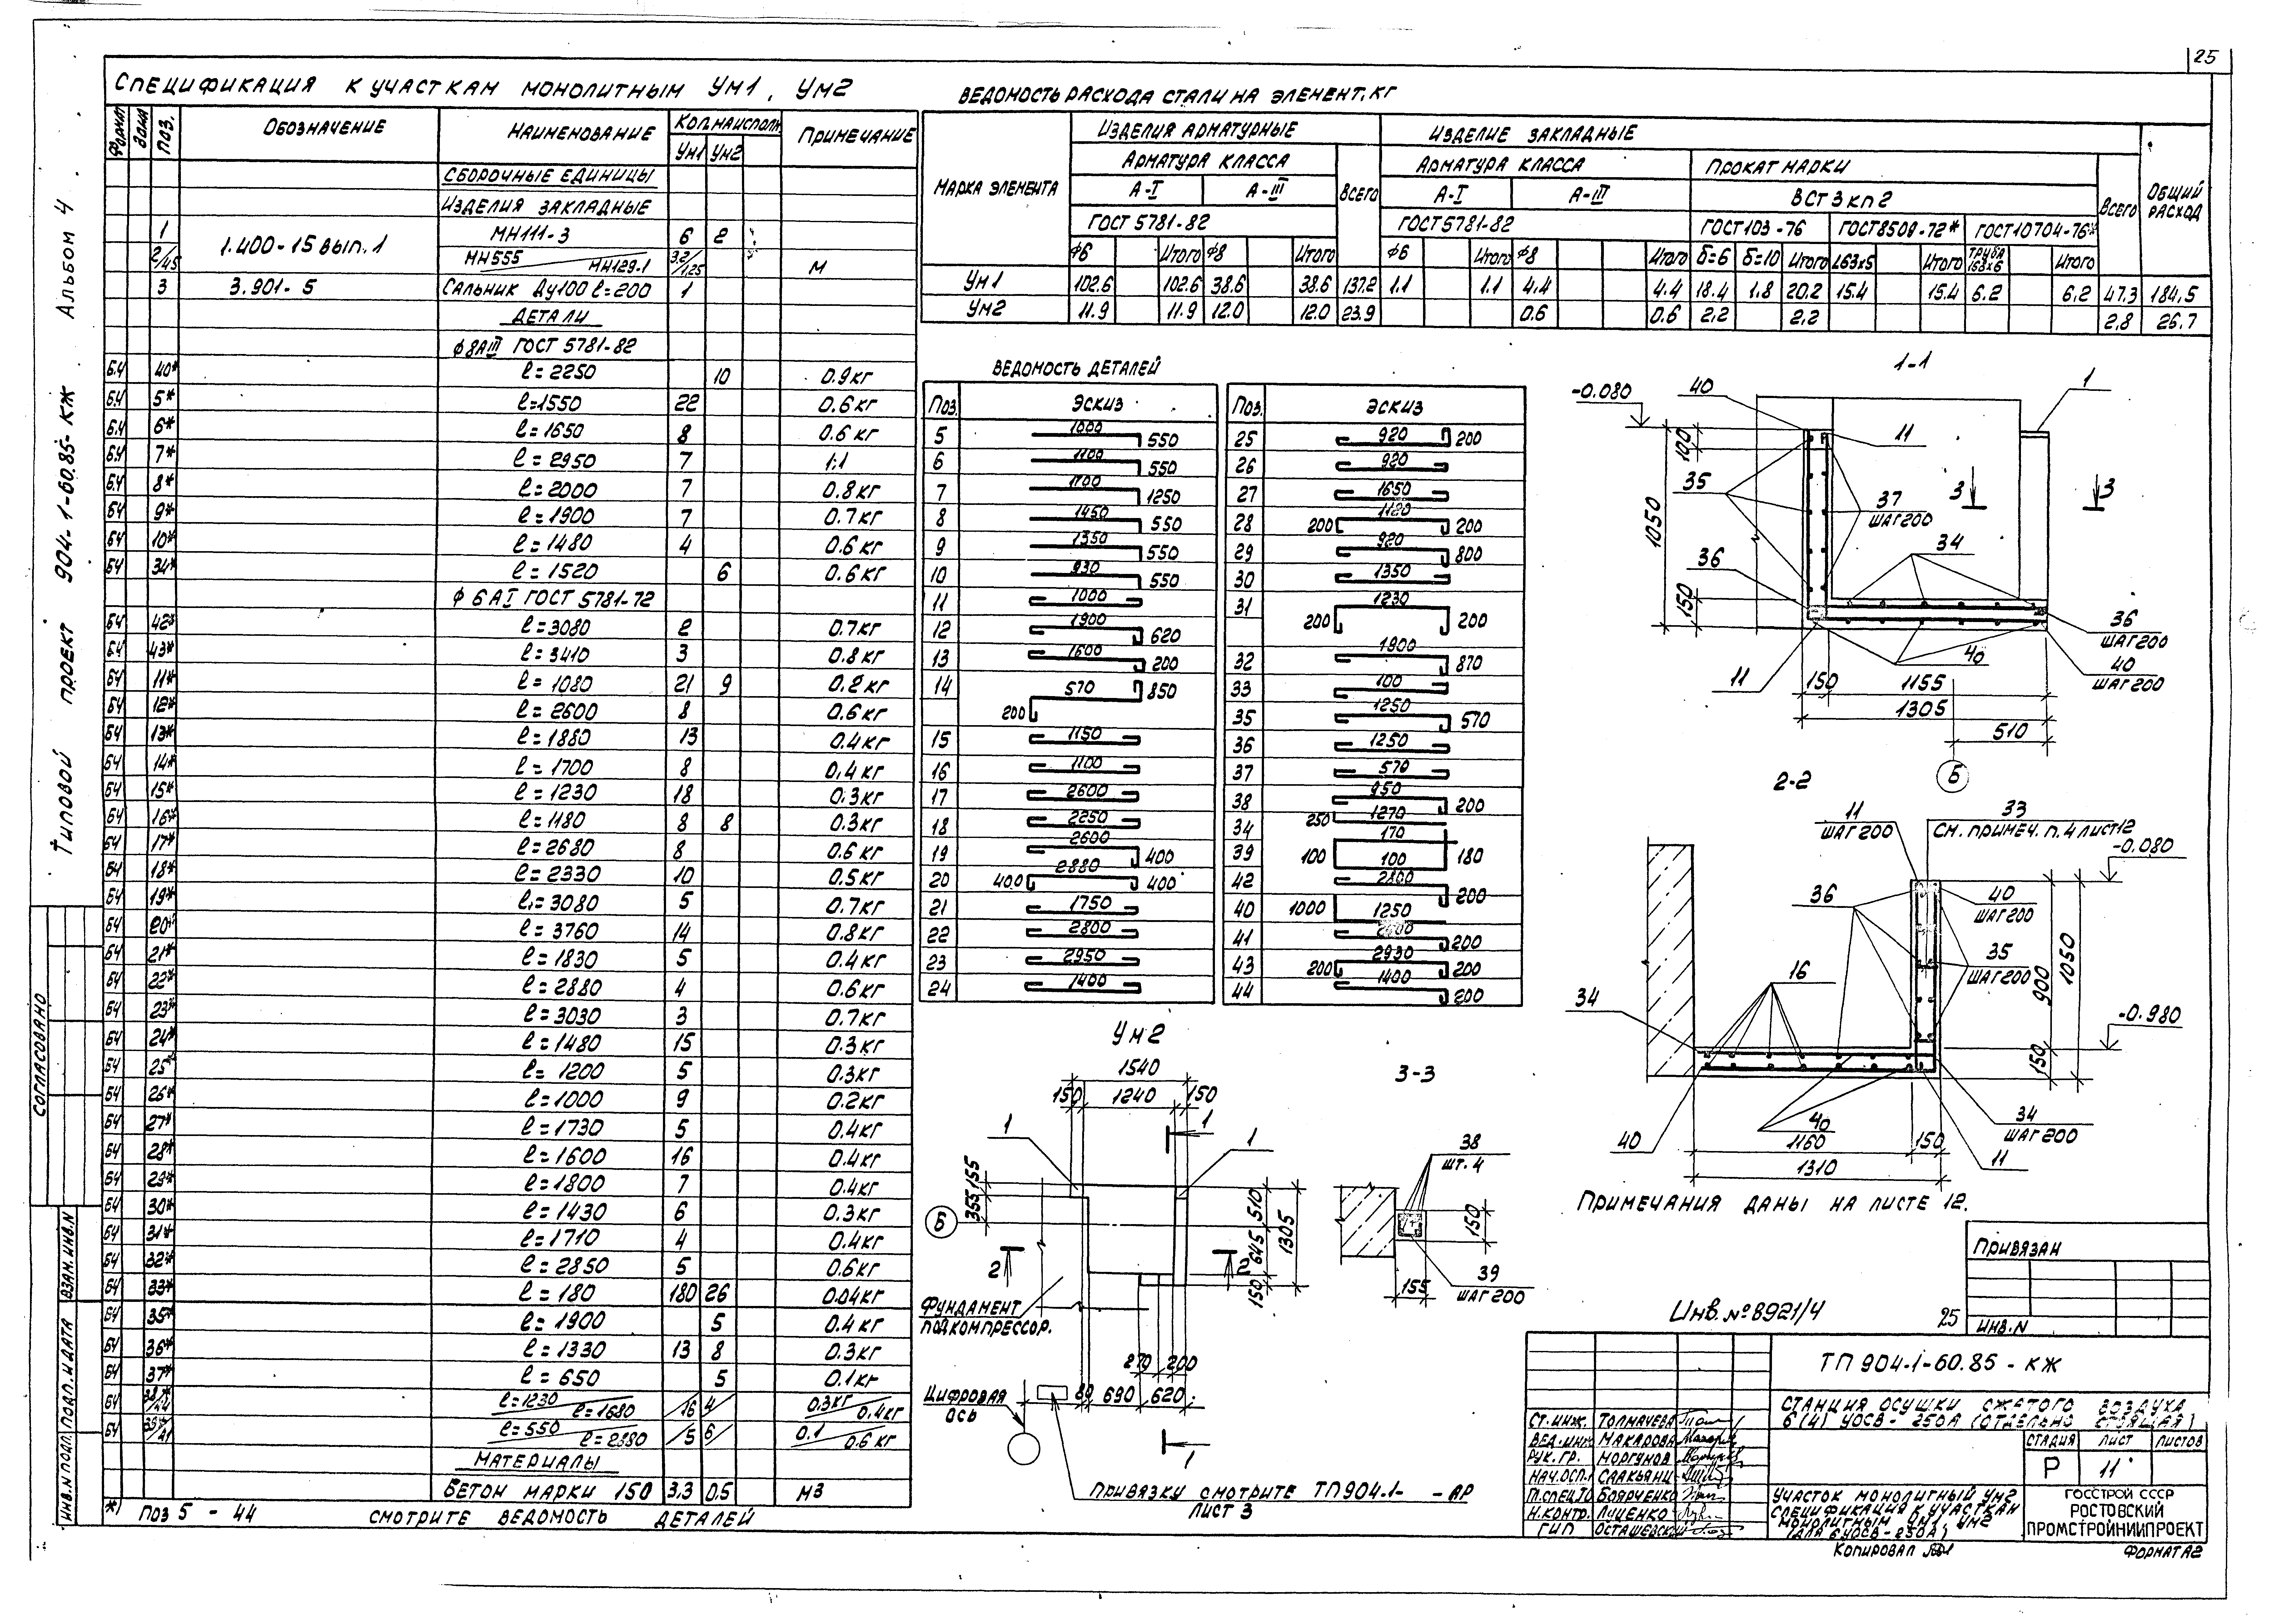 25
Типовой проект 904-1-60.85-КЖ Альбом 4
СОГЛАСОВАНО
ИНВ.N ПОДЛ. ПОДП. И ДАТА ВЗАМ. ИНВ.N
Спецификация к участкам монолитным Ум1, Ум2
Формат Зона Поз. Обозначение Наименование Кол. на исполн. Примечание
Ум1 Ум2
Сборочные единицы
Изделия закладные
1 1.400-15 вып.1 МН111-3 6 2
2/45 МН555 МН129-1 3.2/1.25 м
3 3.901-5 Сальник Ду100 ℓ=200 1
Детали
ϕ8АIII ГОСТ 5781-82
БЧ 40* ℓ=2250 10 0.9кг
БЧ 5* ℓ=1550 22 0.6кг
БЧ 6* ℓ=1650 8 0.6кг
БЧ 7* ℓ=2950 7 1.1
БЧ 8* ℓ=2000 7 0.8кг
БЧ 9* ℓ=1900 7 0.7кг
БЧ 10* ℓ=1480 4 0.6кг
БЧ 34* ℓ=1520 6 0.6кг
ϕ6АI ГОСТ 5781-72
БЧ 42* ℓ=3080 2 0.7кг
БЧ 43* ℓ=3410 3 0.8кг
БЧ 11* ℓ=1080 21 9 0.2кг
БЧ 12* ℓ=2600 8 0.6кг
БЧ 13* ℓ=1880 13 0.4кг
БЧ 14* ℓ=1700 8 0,4кг
БЧ 15* ℓ=1230 18 0.3кг
БЧ 16* ℓ=1180 8 8 0.3кг
БЧ 17* ℓ=2680 8 0.6кг
БЧ 18* ℓ=2330 10 0.5кг
БЧ 19* ℓ=3080 5 0.7кг
БЧ 20* ℓ=3760 14 0.8кг
БЧ 21* ℓ=1830 5 0.4кг
БЧ 22* ℓ=2880 4 0.6кг
БЧ 23* ℓ=3030 3 0.7кг
БЧ 24* ℓ=1480 15 0.3кг
БЧ 25* ℓ=1200 5 0.3кг
БЧ 26* ℓ=1000 9 0.2кг
БЧ 27* ℓ=1730 5 0.4кг
БЧ 28* ℓ=1600 16 0.4кг
БЧ 29* ℓ=1800 7 0.4кг
БЧ 30* ℓ=1430 6 0.3кг
БЧ 31* ℓ=1710 4 0.4кг
БЧ 32* ℓ=2850 5 0.6кг
БЧ 33* ℓ=180 180 26 0.04кг
БЧ 35* ℓ=1900 5 0.4кг
БЧ 36* ℓ=1330 13 8 0.3кг
БЧ 37* ℓ=650 5 0.1кг
БЧ ℓ=1230 ℓ=1680 /16 4/ 0.3кг/0.4кг
БЧ ℓ=550 /5 6/ 0.1/0.6кг
Материалы
Бетон марки 150 3.3 0.5 м3
*) поз 5 - 44 смотрите ведомость деталей
Ведомость расхода стали на элемент, кг
Марка элемента Изделия арматурные Изделие закладные Общий расход
Арматура класса Всего Арматура класса Прокат марки Всего
А-I А-III А-I А-III ВСТ3кп2
ГОСТ 5781-82 ГОСТ 5781-82 ГОСТ103-76 ГОСТ8509-72* ГОСТ10704-76*
ϕ6 Итого ϕ8 Итого ϕ6 Итого ϕ8 Итого δ=6 δ=10 Итого L63х5 Итого Труба 168х6 Итого
Ум1 102.6 102.6 38.6 38.6 137.2 1.1 1.1 4.4 4.4 18.4 1.8 20.2 15.4 15.4 6.2 6.2 47.3 184.5
Ум2 11.9 11.9 12.0 12.0 23.9 0.6 0.6 2.2 2.2 2.8 26.7
Ведомость деталей
Поз. Эскиз
5 1000 550
6 1100 550
7 1700 1250
8 1450 550
9 1350 550
10 930 550
11 1000
12 1900 620
13 1600 200
14 570 850 200
15 1150
16 1100
17 2600
18 2250
19 2600 400
20 400 2880 400
21 1750
22 2800
23 2950
24 1400
Поз. Эскиз
25 920 200
26 920
27 1650
28 200 1120 200
29 920 800
30 1350
31 200 1230 200
32 1900 870
33 100
35 1250 570
36 1250
37 570
38 950 200
34 250 1270
39 100 170 100 180
42 2800 200
40 1000 1250
41 200
43 200 2930 200
44 1400 200
1-1
-0.080
40
1
11
100
35
37
ШАГ200
3 3
1050
36
34
150
36
ШАГ200
40
40
ШАГ200
11
150 1155
1305
510
Б
2-2
11
ШАГ200
33
См. примеч. п.4 лист12
-0.080
36
40
ШАГ200
35
ШАГ200
16
34
900
1050
-0.980
150
34
ШАГ200
40
40
1160 150
11
1310
Ум2
1540
150 1240 150
1 1 1
355 155
510
645
1305
150
Б
2 2
Фундамент
под компрессор.
270 200
80 690 620
Цифровая
ось
1
Привязку смотрите ТП904-1- -АР
лист 3
3-3
38
шт. 4
150
39
ШАГ200
155
Примечания даны на листе 12.
Привязан
ИНВ.N
Инв. №8921/4 25
ТП 904-1-60.85-КЖ
Станция осушки сжатого воздуха
6(4) УОСВ-250А (отдельно стоящая)
Ст. инж. Толмачева
Вед. инж. Макарова
Рук. гр. Моргунов
Нач. осп.1 Саакьянц
Гл. спец. Боярченко
Н. контр. Луценко
ГИП Осташевский
Стадия Лист Листов
Р 11
Участок монолитный Ум2
Спецификация к участкам
монолитным Ум1, Ум2
(для 6УОСВ-250А)
ГОССТРОЙ СССР
РОСТОВСКИЙ
ПРОМСТРОЙНИИПРОЕКТ
Копировал
Формат А2